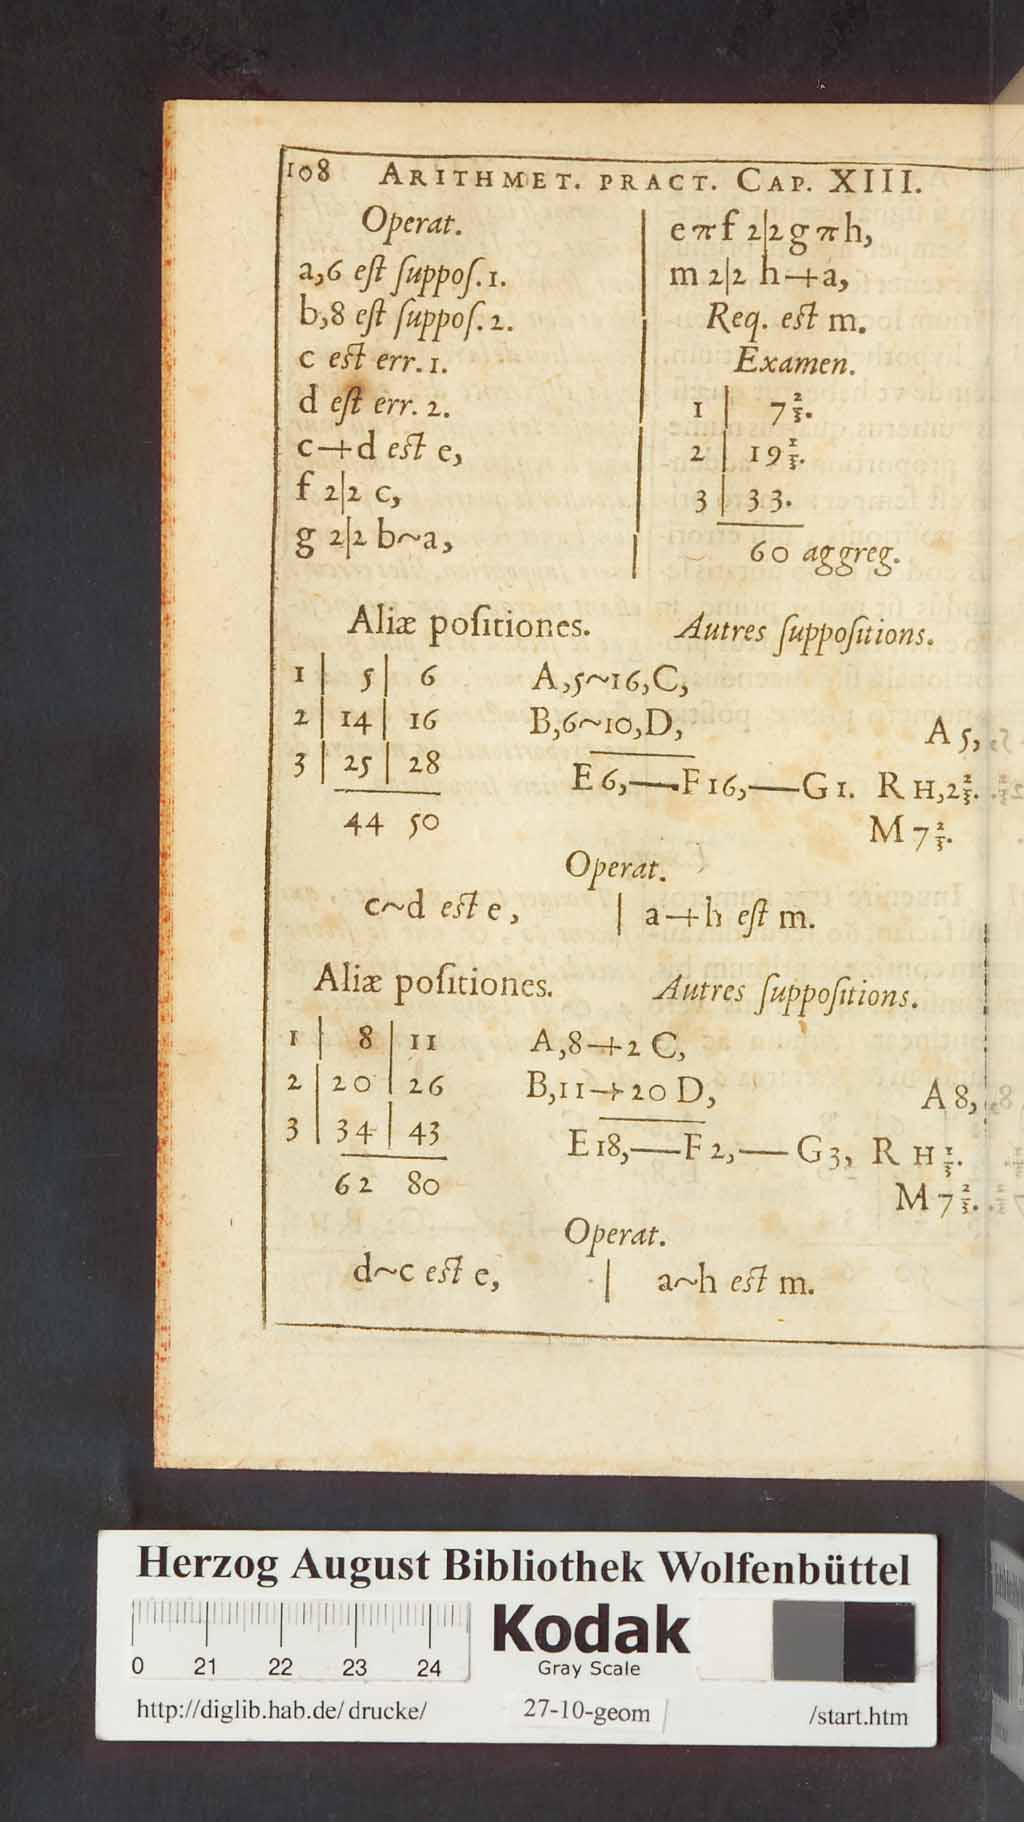 108 ARITHMET. PRACT. CAP. XIII.
Operat.
a,6 eſt ſuppoſ. 1.
b,8 eſt ſuppoſ. 2.
c eſt err. 1.
d eſt err. 2.
c+d eſt e,
f 2|2 c,
g 2|2 b~a,
eπf 2|2 gπh,
m 2|2 h+a,
Req. eſt m.
Examen.
1 | 7 2/3.
2 | 19 1/3.
3 | 33.
60 aggreg.
Aliæ poſitiones. Autres ſuppoſitions.
1 | 5 | 6 A,5~16,C,
2 | 14 | 16 B,6~10,D, A 5,
3 | 25 | 28 E 6,—F 16,—G 1. R H,2 2/3.
44 50 M 7 2/3.
Operat.
c~d eſt e, | a+h eſt m.
Aliæ poſitiones. Autres ſuppoſitions.
1 | 8 | 11 A,8+2 C,
2 | 20 | 26 B,11+20 D, A 8,
3 | 34 | 43 E 18,—F 2,—G 3, R H 1/3.
62 80 M 7 2/3.
Operat.
d~c eſt e, | a~h eſt m.
Herzog August Bibliothek Wolfenbüttel
0 21 22 23 24
Kodak
Gray Scale
http://diglib.hab.de/drucke/ 27-10-geom /start.htm